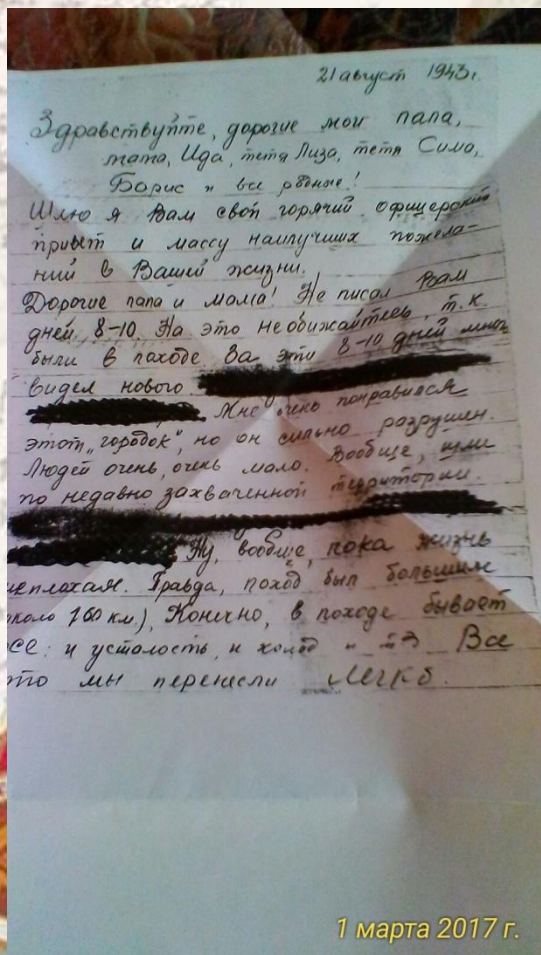 21 август 1943 г.
Здравствуйте, дорогие мои папа,
мама, Ида, тетя Лиза, тетя Сима,
Борис и все родные!
Шлю я Вам свой горячий офицерский
привет и массу наилучших пожела-
ний в Вашей жизни.
Дорогие папа и мама! Не писал Вам
дней 8-10. На это не обижайтесь, т.к.
были в походе. За эти 8-10 дней много
видел нового
Мне очень понравился
этот "городок", но он сильно разрушен.
Людей очень, очень мало. Вообще, шли
по недавно захваченной территории.
Ну, вообще, пока жизнь
неплохая. Правда, поход был большим
около 160 км). Конечно, в походе бывает
все: и усталость, и холод и т.д. Все
это мы перенесли легко.
1 марта 2017 г.